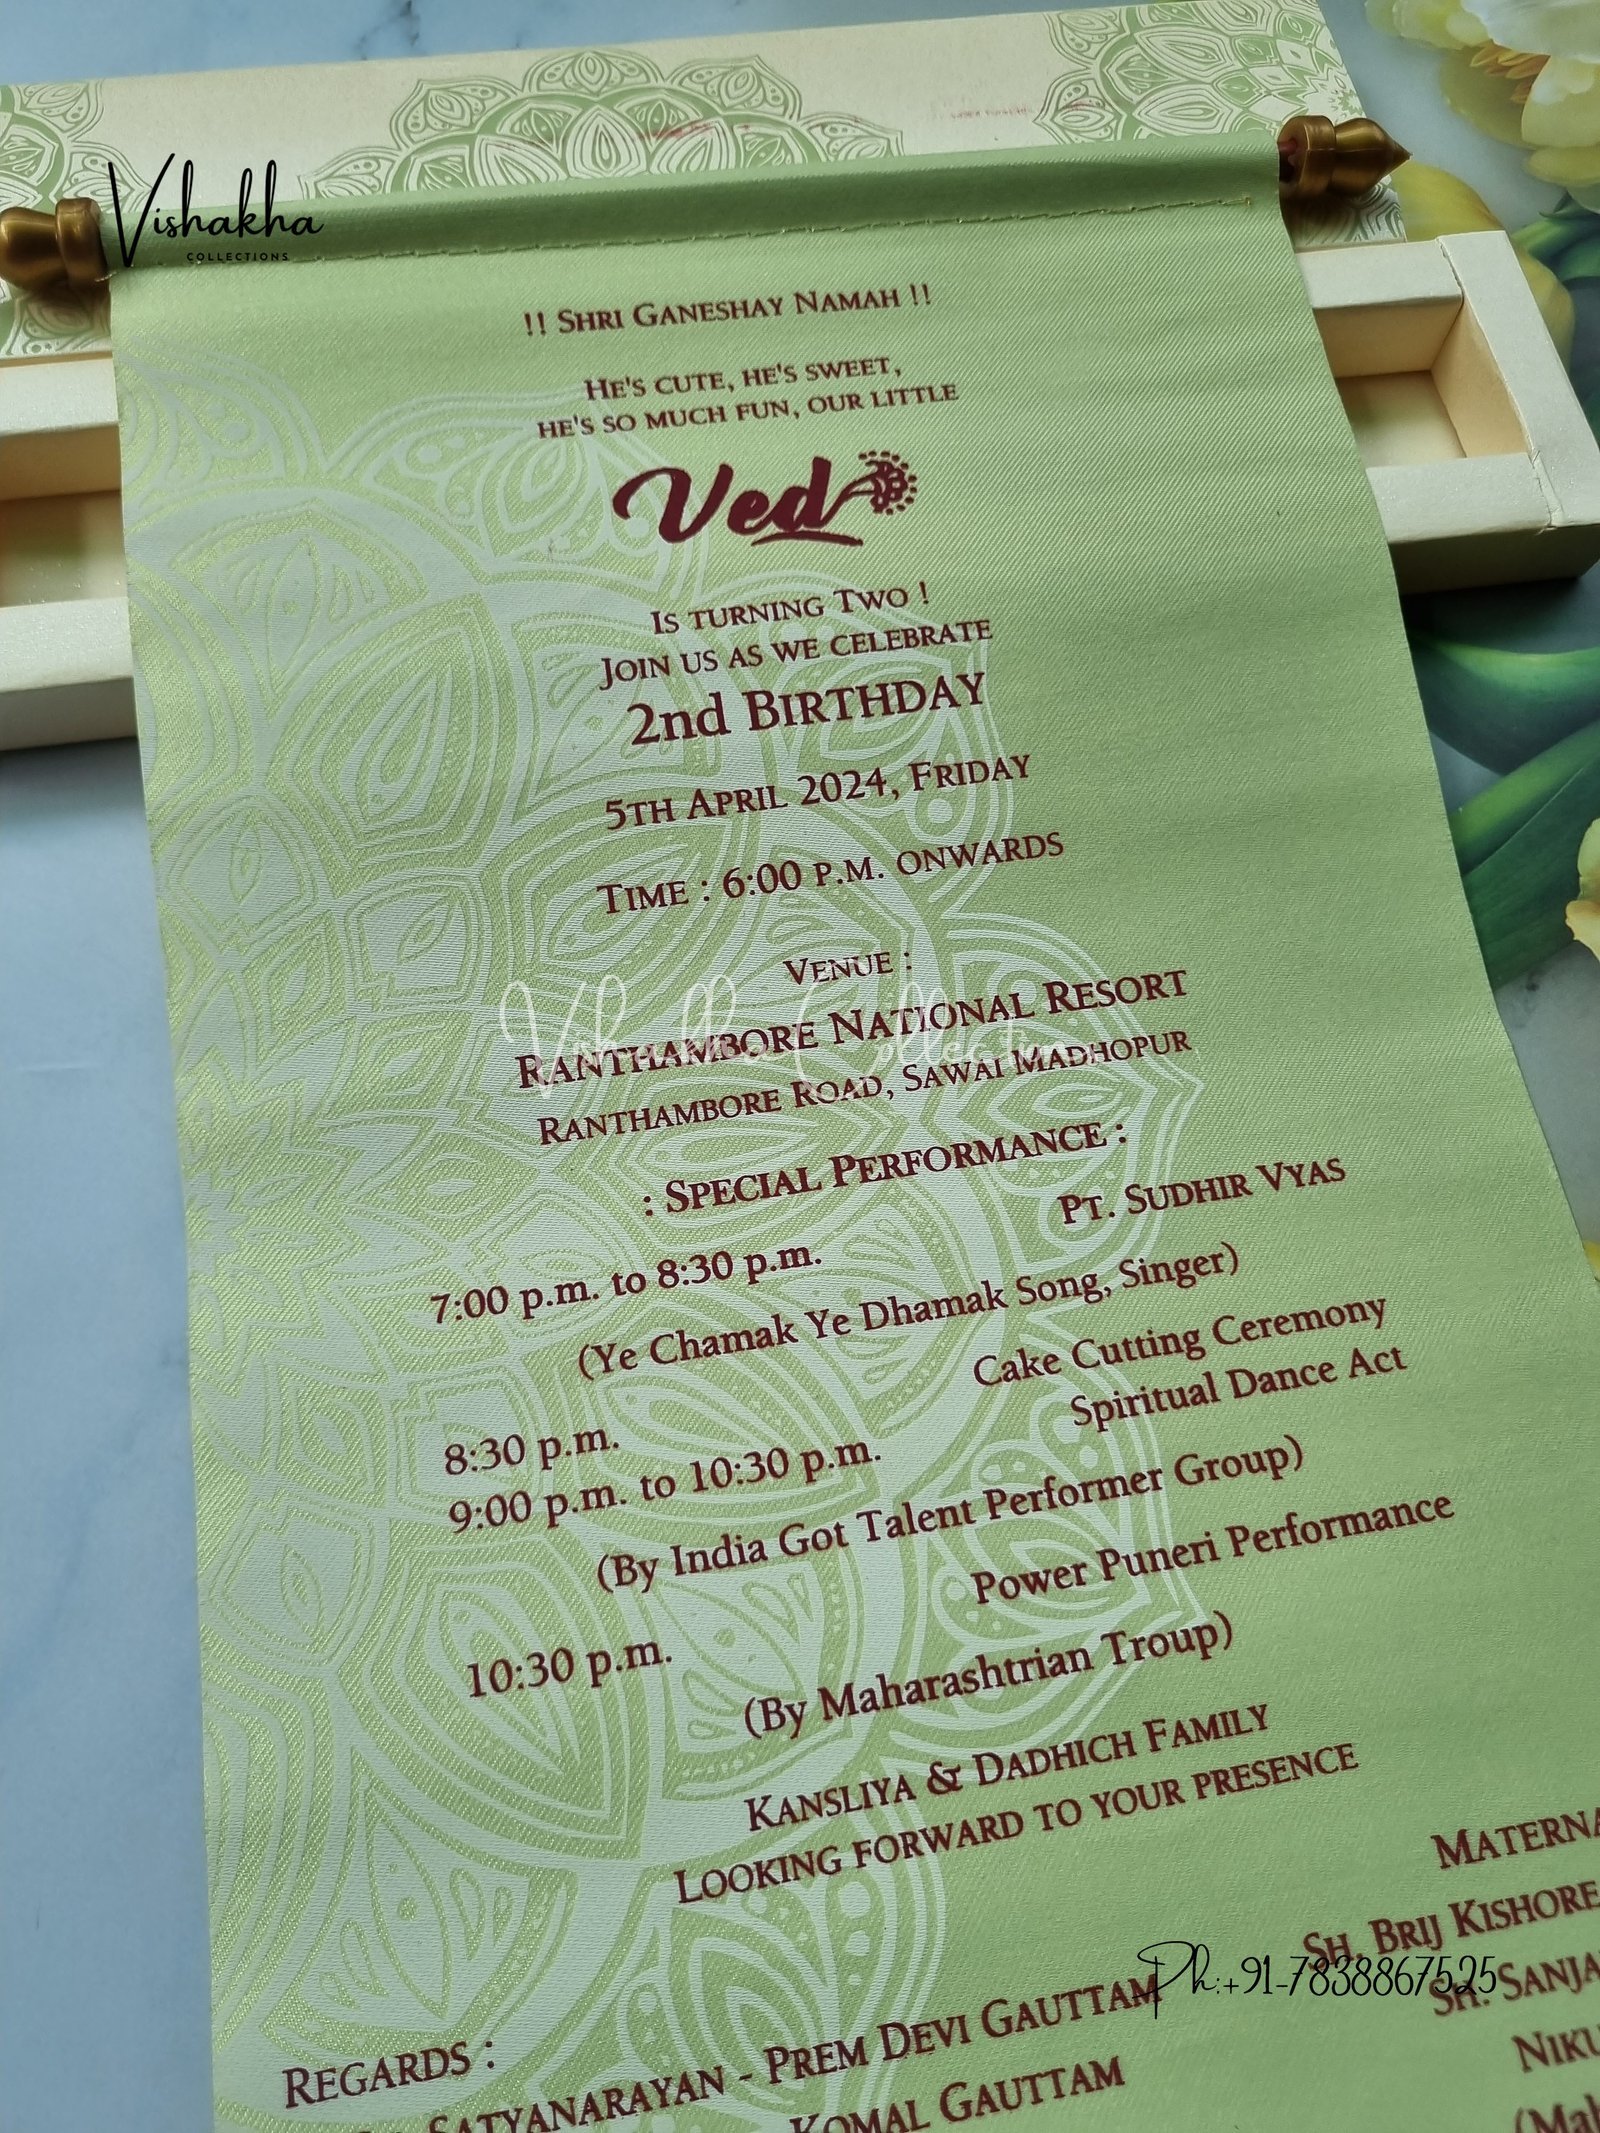 Vishakha
COLLECTIONS
!! SHRI GANESHAY NAMAH !!
HE'S CUTE, HE'S SWEET,
HE'S SO MUCH FUN, OUR LITTLE
Ved
IS TURNING TWO !
JOIN US AS WE CELEBRATE
2nd BIRTHDAY
5TH APRIL 2024, FRIDAY
TIME : 6:00 P.M. ONWARDS
VENUE :
Vishakha Collections
RANTHAMBORE NATIONAL RESORT
RANTHAMBORE ROAD, SAWAI MADHOPUR
: SPECIAL PERFORMANCE :
7:00 p.m. to 8:30 p.m. PT. SUDHIR VYAS
(Ye Chamak Ye Dhamak Song, Singer)
8:30 p.m. Cake Cutting Ceremony
9:00 p.m. to 10:30 p.m. Spiritual Dance Act
(By India Got Talent Performer Group)
10:30 p.m. Power Puneri Performance
(By Maharashtrian Troup)
KANSLIYA & DADHICH FAMILY
LOOKING FORWARD TO YOUR PRESENCE
REGARDS :
SATYANARAYAN - PREM DEVI GAUTTAM
KOMAL GAUTTAM
MATERNA
SH. BRIJ KISHORE
SH. SANJA
NIKU
(Mah
Ph:+91-7838867525